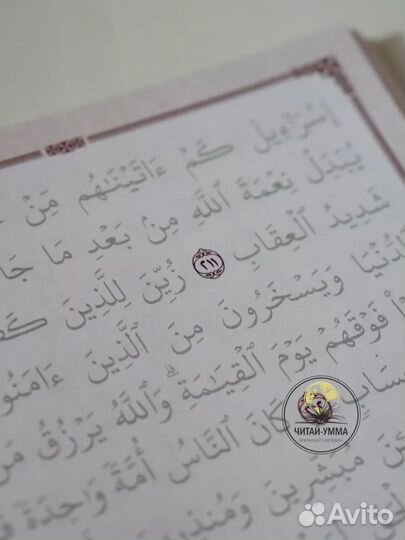 إِسْرَٰٓءِيلَ كَمْ ءَاتَيْنَٰهُم مِّنْ
يُبَدِّلْ نِعْمَةَ ٱللَّهِ مِنۢ بَعْدِ مَا
شَدِيدُ ٱلْعِقَابِ ٢١١ زُيِّنَ لِلَّذِينَ
وَيَسْخَرُونَ مِنَ ٱلَّذِينَ
فَوْقَهُمْ يَوْمَ ٱلْقِيَٰمَةِ ۗ وَٱللَّهُ يَرْزُقُ
كَانَ ٱلنَّاسُ أُمَّةً وَٰحِدَةً
مُبَشِّرِينَ
ЧИТАЙ-УММА
КНИЖНЫЙ МАГАЗИН
Avito